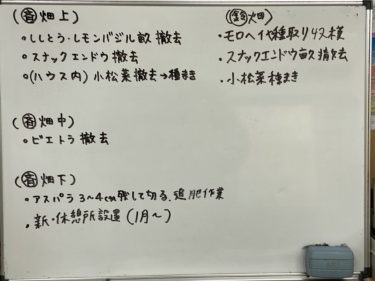 (斎 畑上)
○ししとう・レモンバジル畝 撤去
○スナックエンドウ 撤去
○(ハウス内) 小松菜 撤去→種まき
(斎 畑中)
○ビエトラ 撤去
(斎 畑下)
○アスパラ 3〜4cm残して切る、追肥作業
・新・休憩所設置 (1月〜)
畑)
・モロヘイヤ種取り 収穫
・スナックエンドウ 畝 撤去
・小松菜 種まき